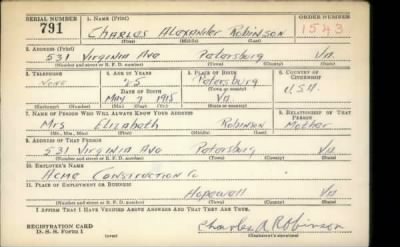 SERIAL NUMBER 1. NAME (Print) ORDER NUMBER
791 CHARLES ALEXANDER ROBINSON 1543
(First) (Middle) (Last)
2. ADDRESS (Print)
531 Virginia Ave Petersburg Va
(Number and street or R. F. D. number) (Town) (County) (State)
3. TELEPHONE 4. AGE IN YEARS 5. PLACE OF BIRTH 6. COUNTRY OF CITIZENSHIP
NONE 25 Petersburg
DATE OF BIRTH (Town or county) U.S.A.
MAY 7 1915 Va
(Exchange) (Number) (Mo.) (Day) (Yr.) (State or country)
7. NAME OF PERSON WHO WILL ALWAYS KNOW YOUR ADDRESS 8. RELATIONSHIP OF THAT PERSON
Mrs Elizabeth Robinson Mother
(Mr., Mrs., Miss) (First) (Middle) (Last)
9. ADDRESS OF THAT PERSON
531 Virginia Ave Petersburg Va
(Number and street or R. F. D. number) (Town) (County) (State)
10. EMPLOYER'S NAME
Acme Construction Co
11. PLACE OF EMPLOYMENT OR BUSINESS
Hopewell Va
(Number and street or R. F. D. number) (Town) (County) (State)
I AFFIRM THAT I HAVE VERIFIED ABOVE ANSWERS AND THAT THEY ARE TRUE.
REGISTRATION CARD Charles A Robinson
D. S. S. Form 1 (Registrant's signature)